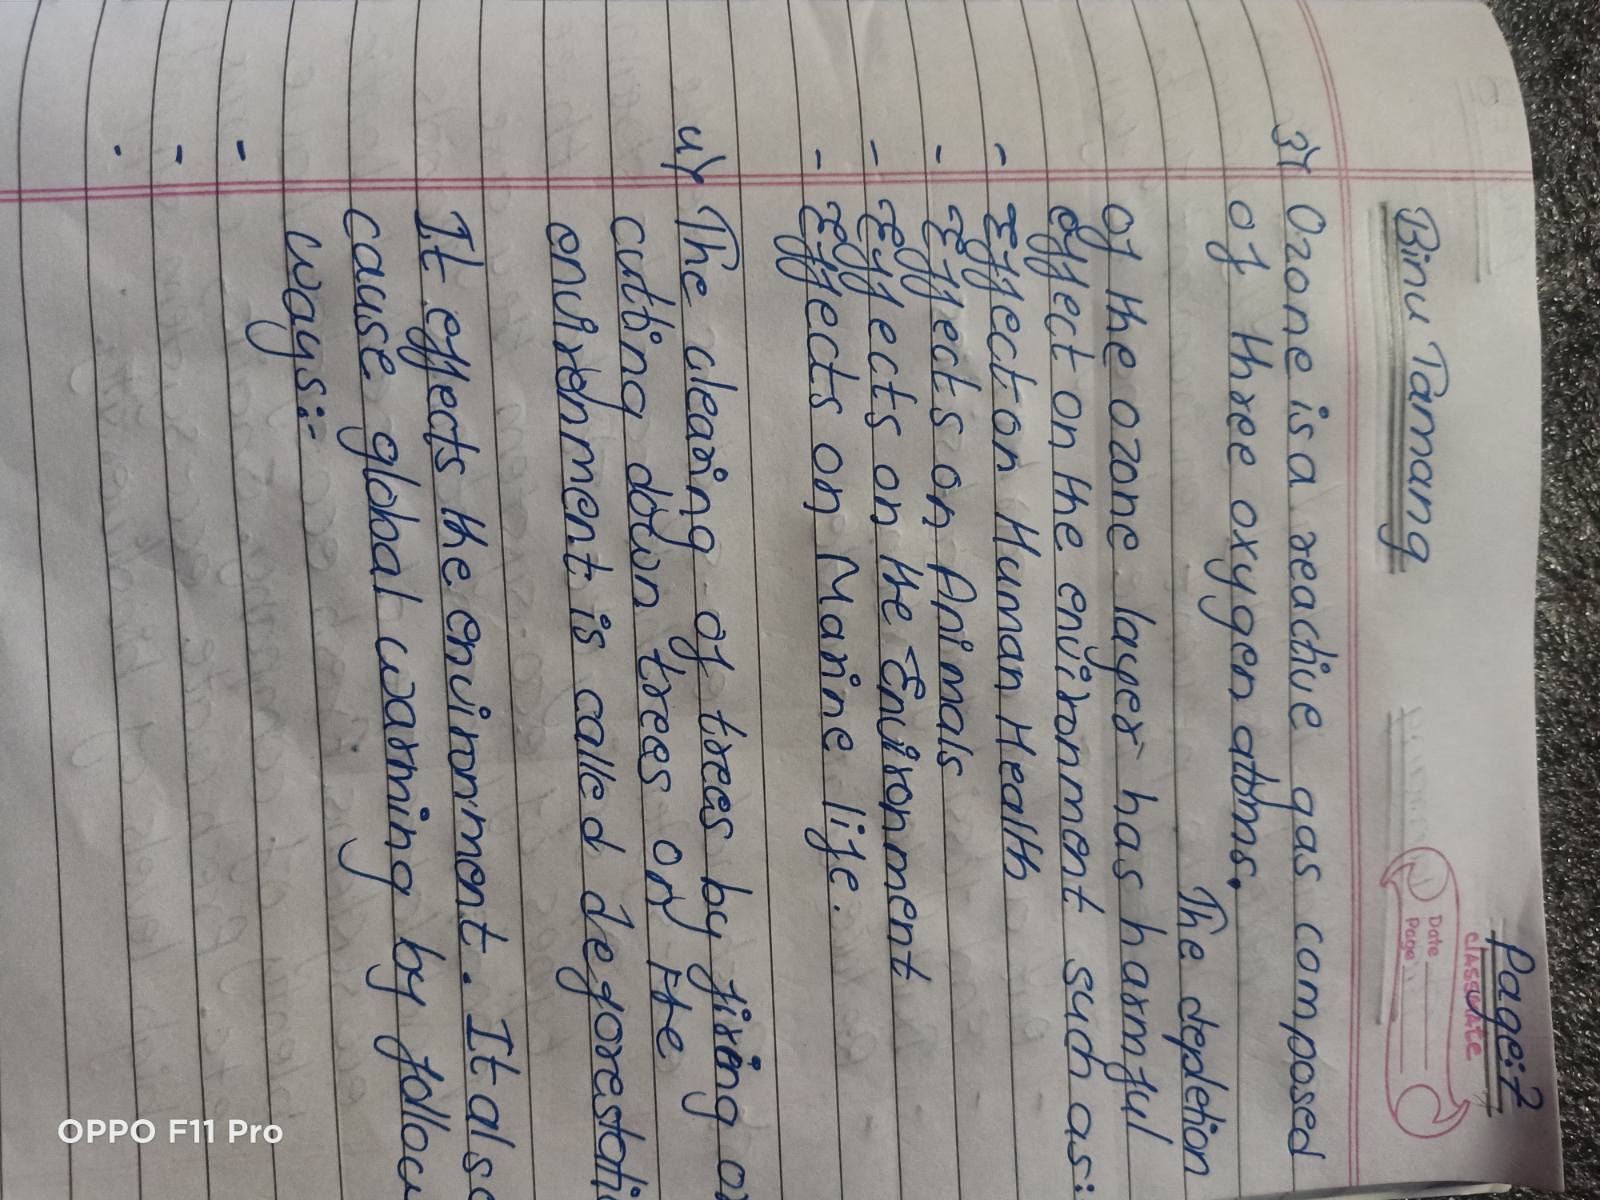 Page:7
classmate
Date
Page
Binu Tamang
3) Ozone is a reactive gas composed
of three oxygen atoms.
The depletion
of the ozone layer has harmful
effect on the environment such as:
- Effect on Human Health
- Effects on Animals
- Effects on the Environment
- Effects on Marine life.
4) The clearing of trees by firing or
cutting down trees on the
environment is called deforestati
It effects the environment. It als
cause global warming by follow
ways:-
-
-
-
OPPO F11 Pro